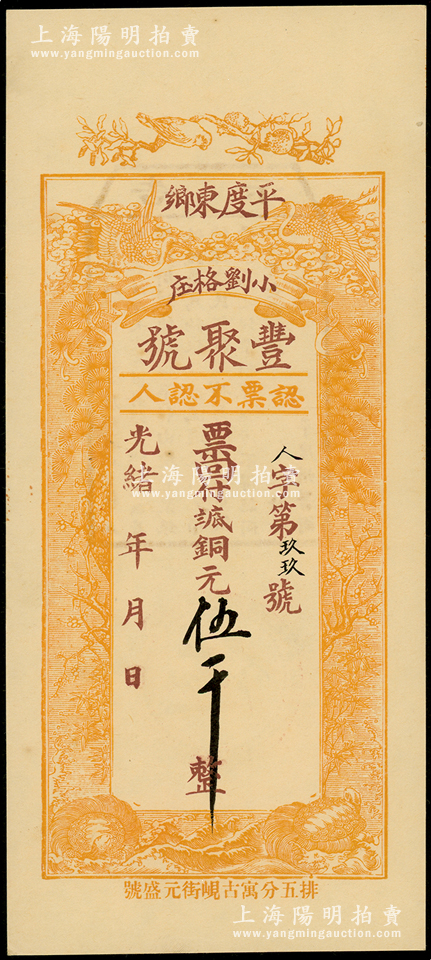 上海陽明拍賣
www.yangmingauction.com
平度東鄉
小劉格庄
豐聚號
認票不認人
人字第玖玖號
票付諕銅元伍千整
光緒 年 月 日
上海陽明拍賣
www.yangmingauction.com
排五分寓古峴街元盛號
上海陽明拍賣
www.yangmingauction.com